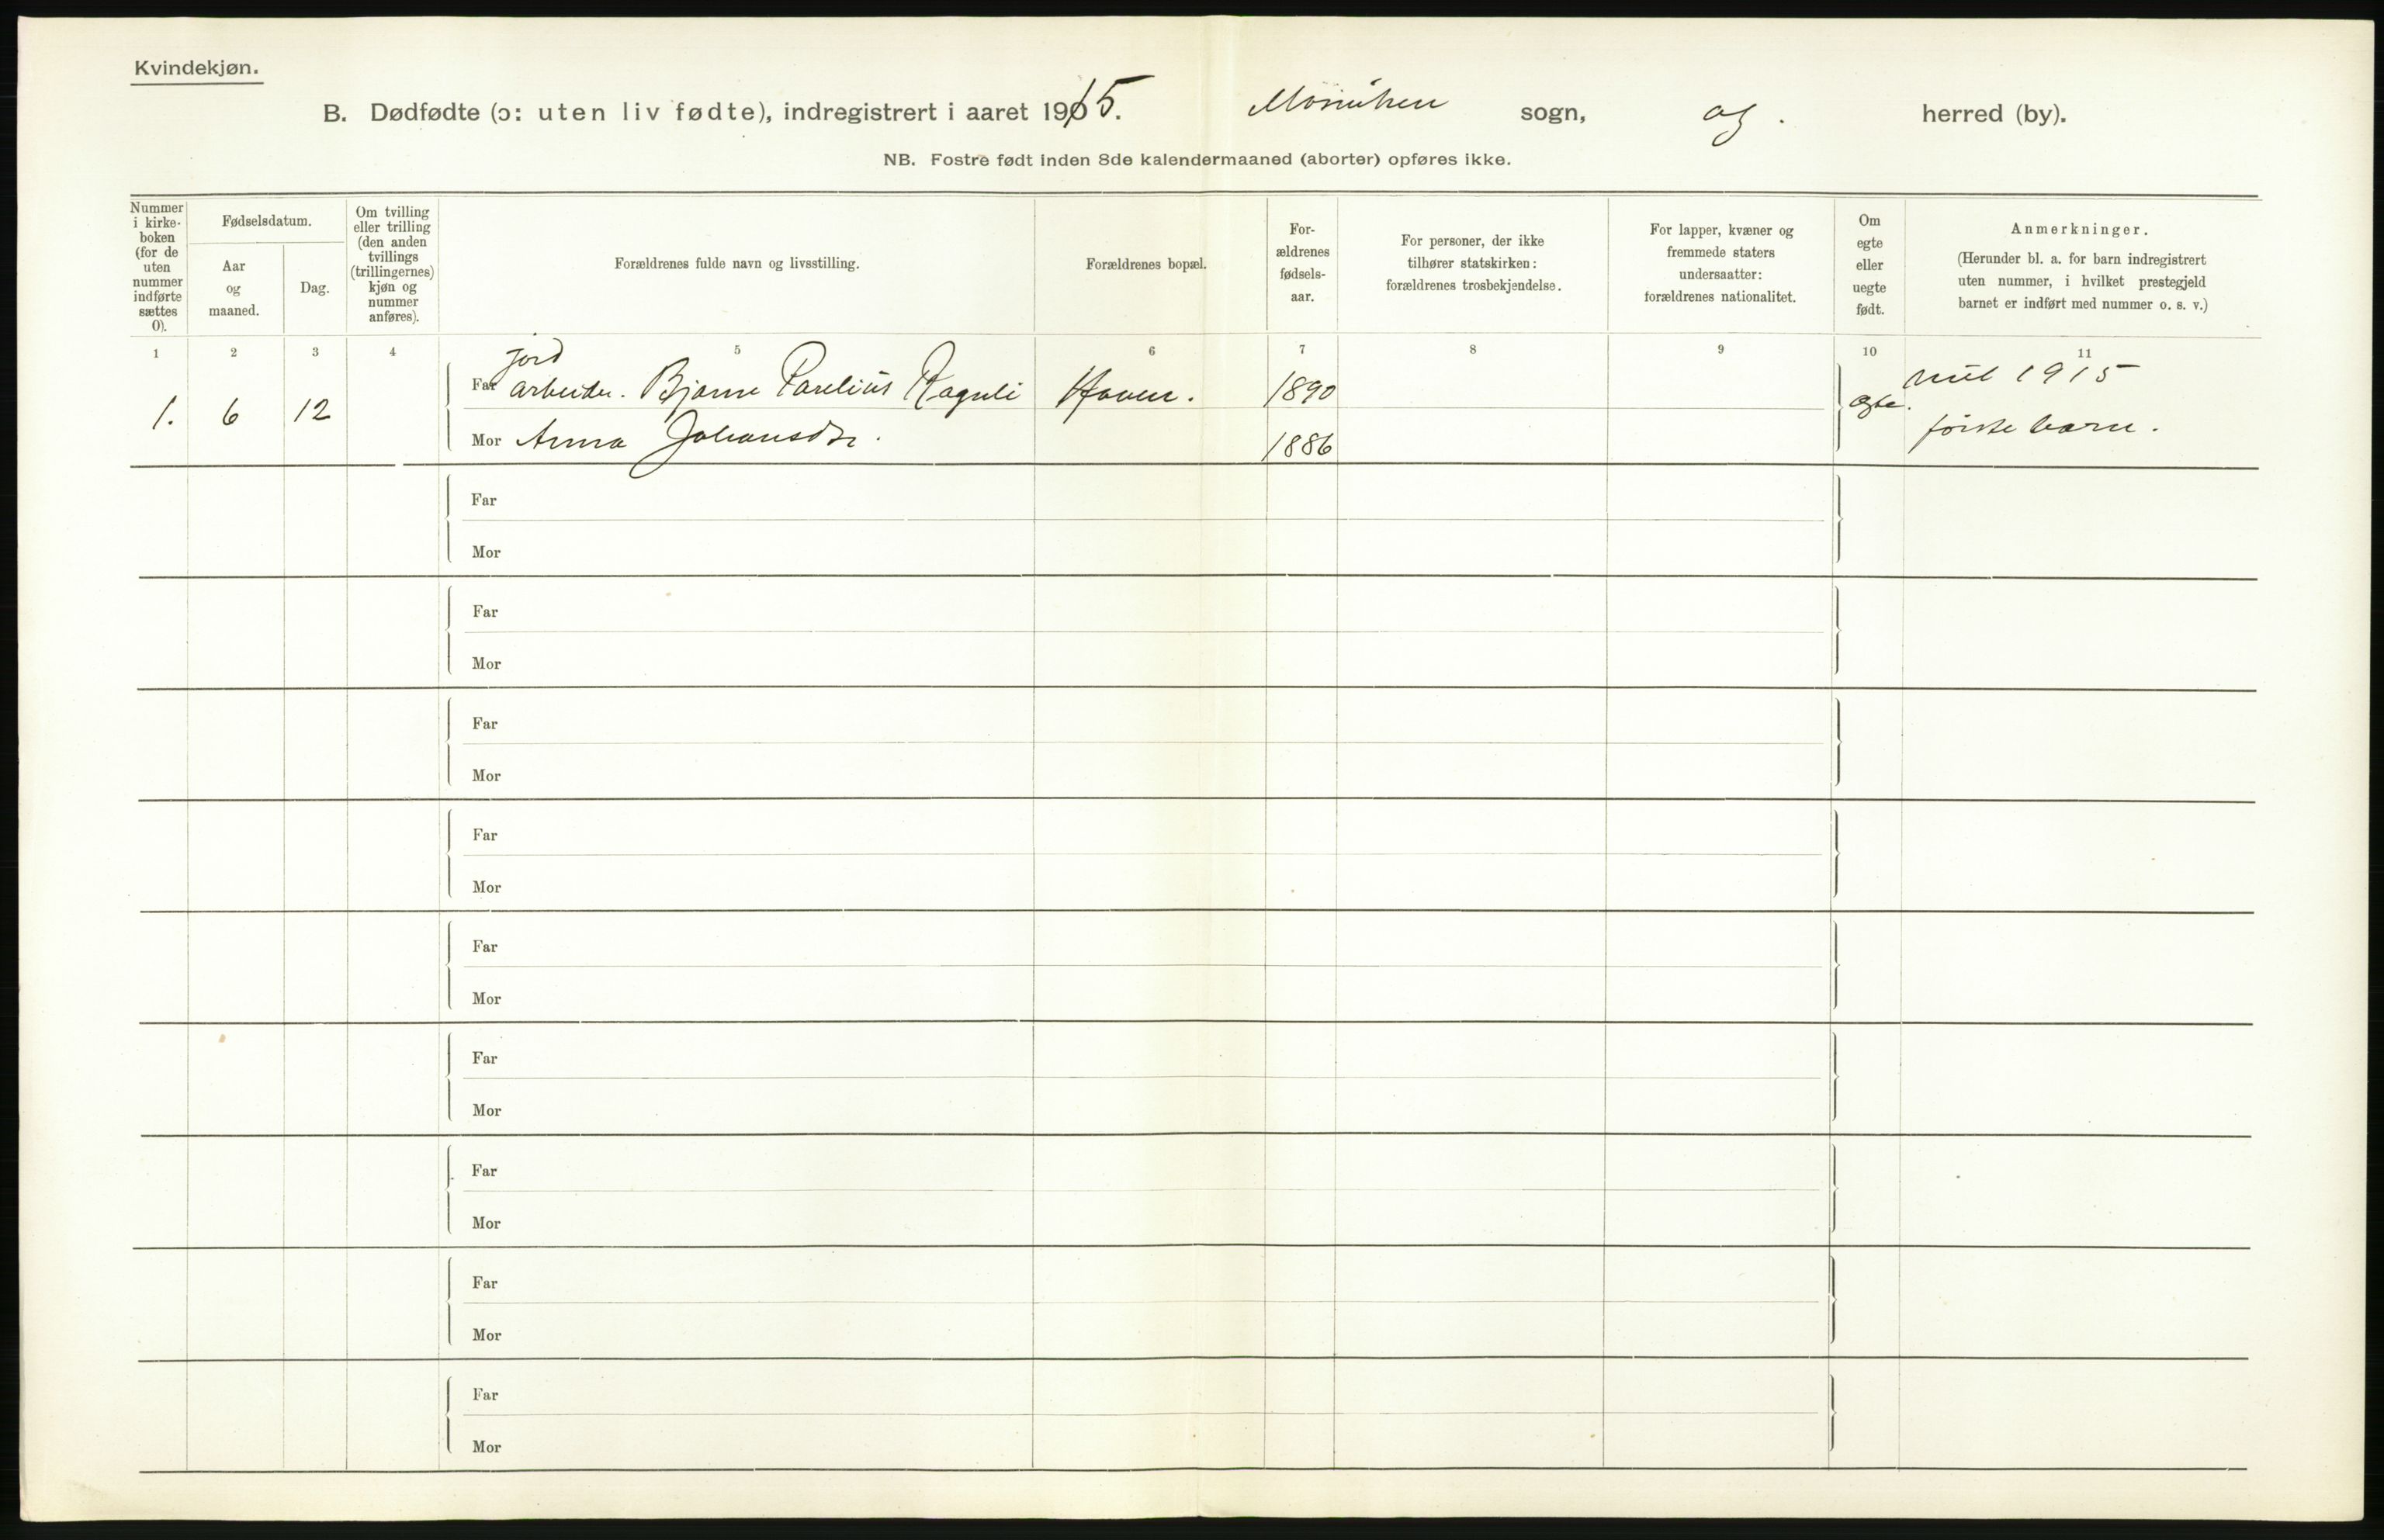 Kvindekjøn.
B. Dødfødte (ɔ: uten liv fødte), indregistrert i aaret 1915. sogn, og. herred (by).
NB. Fostre født inden 8de kalendermaaned (aborter) opføres ikke.
Nummer i kirke-boken (for de uten nummer indførte sættes 0).
Fødselsdatum.
Aar og maaned.
Dag.
Om tvilling eller trilling (den anden tvillings (trillingernes) kjøn og nummer anføres).
Forældrenes fulde navn og livsstilling.
Forældrenes bopæl.
For-ældrenes fødsels-aar.
For personer, der ikke tilhører statskirken: forældrenes trosbekjendelse.
For lapper, kvæner og fremmede staters undersaatter: forældrenes nationalitet.
Om egte eller uegte født.
Anmerkninger.
(Herunder bl. a. for barn indregistrert uten nummer, i hvilket prestegjeld barnet er indført med nummer o. s. v.)
1 2 3 4 5 6 7 8 9 10 11
1. 6 12
Far jord arbeider. Bjarne Parelius Raguli 1890 egte. 1915
Mor Anna Johansdtr. 1886 første barn.
Far
Mor
Far
Mor
Far
Mor
Far
Mor
Far
Mor
Far
Mor
Far
Mor
Far
Mor
Far
Mor